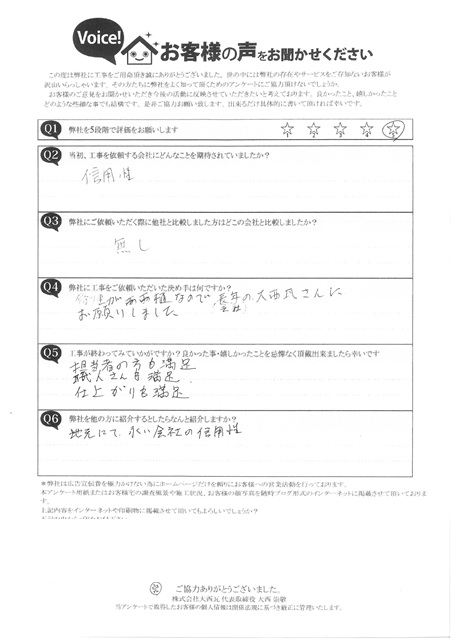 Voice!
お客様の声をお聞かせください
この度は弊社に工事をご用命頂き誠にありがとうございました。世の中には弊社の存在やサービスをご存知ないお客様が
沢山いらっしゃいます。その方たちに弊社をよく知って頂くためのアンケートにご協力頂けないでしょうか。
お客様のご意見をお聞かせいただき今後の活動に反映させていただきたいと考えております。良かったこと、嬉しかったこと
どのような些細な事でも結構です。是非ご協力お願い致します。出来るだけ具体的に書いて頂ければ幸いです。
Q1 弊社を5段階で評価をお願いします
Q2 当初、工事を依頼する会社にどんなことを期待されていましたか?
信用性
Q3 弊社にご依頼いただく際に他社と比較しました方はどこの会社と比較しましたか?
無し
Q4 弊社に工事をご依頼いただいた決め手は何ですか?
なので 長年の大西瓦さんに
お願いしました
Q5 工事が終わってみていかがですか?良かった事・嬉しかったことを忌憚なく頂戴出来ましたら幸いです
担当者の方も満足
職人さんも満足
仕上がりも満足
Q6 弊社を他の方に紹介するとしたらなんと紹介しますか?
地元にて永い会社の信用性
※弊社は広告宣伝費を極力かけない為にホームページだけを頼りにお客様への営業活動を行っております。
本アンケート用紙またはお客様宅の調査風景や施工状況、お客様の顔写真を随時ブログ形式のインターネットに掲載させて頂いておりま
す。
上記内容をインターネットや印刷物に掲載させて頂いてもよろしいでしょうか?
ご協力ありがとうございました。
株式会社大西瓦 代表取締役 大西
当アンケートで取得したお客様の個人情報は関係法規に基づき厳正に管理いたします。